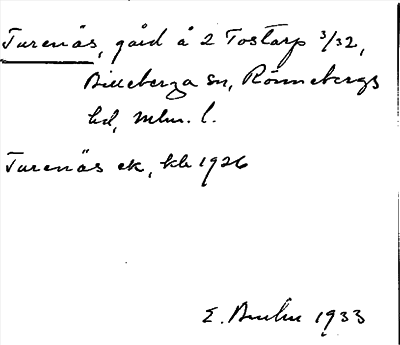 Turenäs, gård å 2 Tostarp 3/32,
Billeberga sn, Rönnebergs
hd, Mlm. l.
Turenäs ek, kb 1926
E. 1933